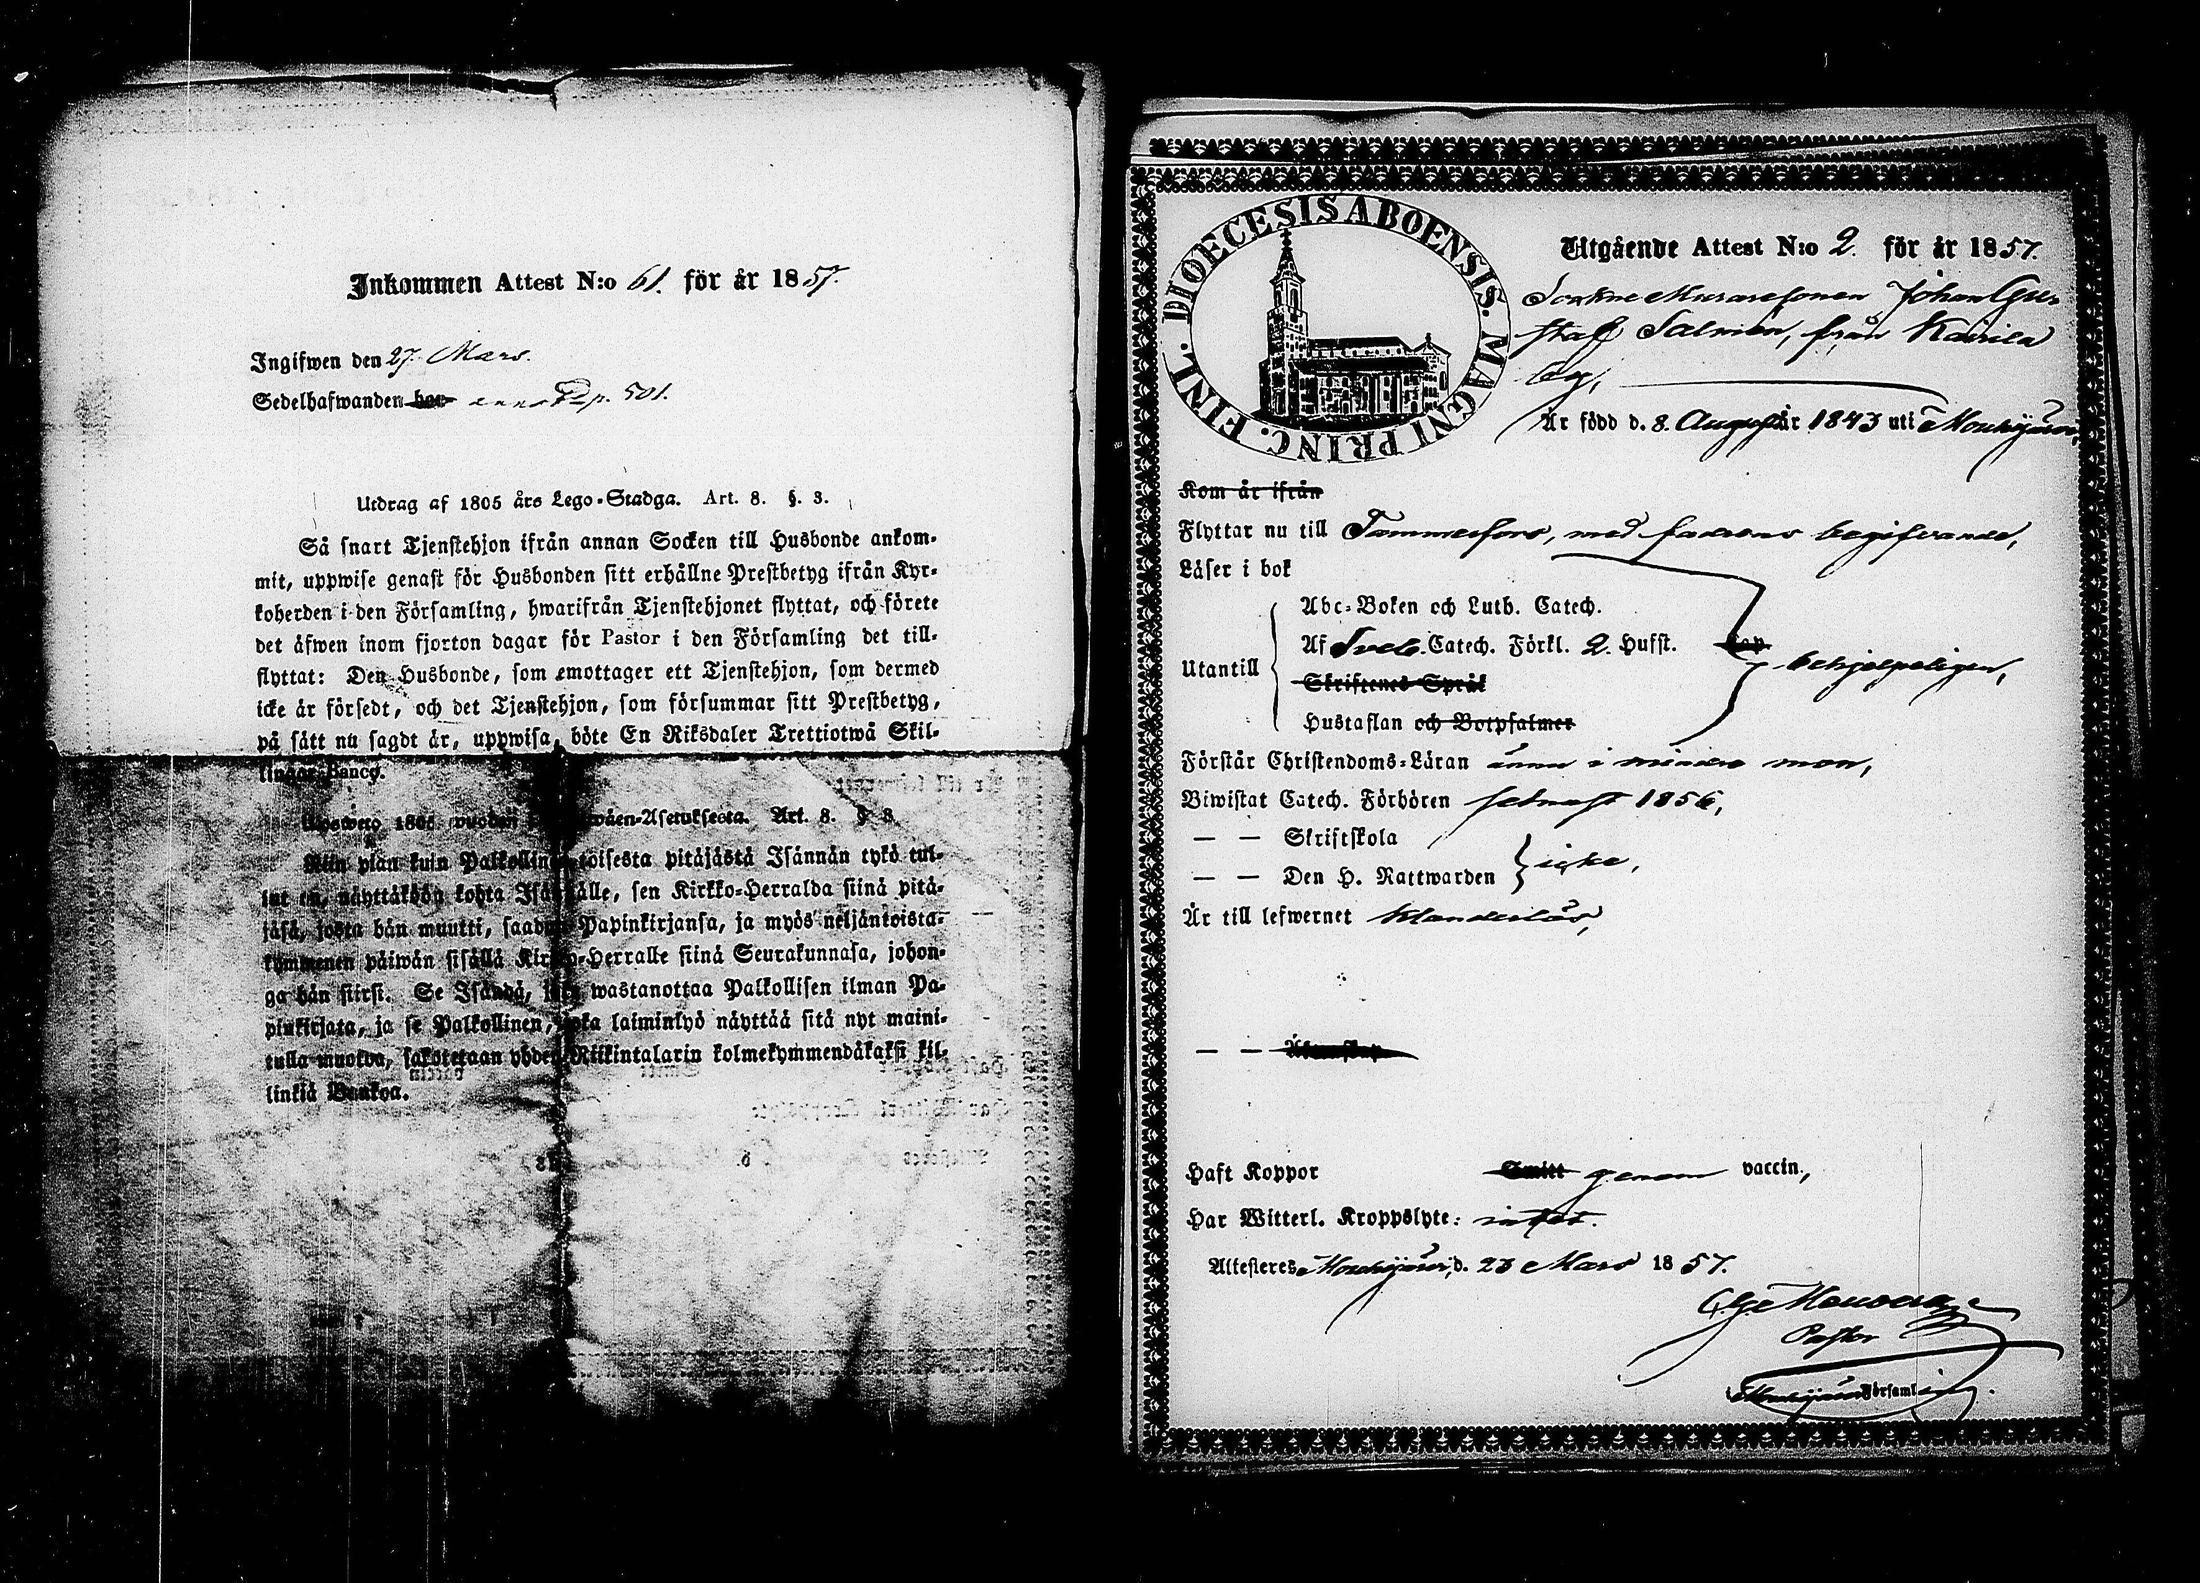 Inkommen Attest N:o 61. för år 1857.
Ingifwen den 27. Mars.
Sedelhafwanden har p. 501.
Utdrag af 1805 års Lego-Stadga. Art. 8. §. 3.
Så snart Tjenstehjon ifrån annan Socken till Husbonde ankom-
mit, uppwise genast för Husbonden sitt erhållne Prestbetyg ifrån Kyr-
koherden i den Församling, hwarifrån Tjenstehjonet flyttat, och förete
det äfwen inom fjorton dagar för Pastor i den Församling det till-
flyttat: Den Husbonde, som emottager ett Tjenstehjon, som dermed
icke är försedt, och det Tjenstehjon, som försummar sitt Prestbetyg,
på sätt nu sagdt är, uppwisa, böte En Riksdaler Trettiotwå Skil-
lingar Banco.
1805 vuoden Asetuksesta. Art. 8. § 3.
Niin pian kuin Palkollinen toisesta pitäjästä Isännän tykö tul-
lut on, näyttäköön kohta Isännälle, sen Kirkko-Herralda siinä pitä-
jäsä, josta hän muutti, saadun Papinkirjansa, ja myös neljäntoista-
kymmenen päiwän sisällä Kirkko-Herralle siinä Seurakunnasa, johon-
ga hän siirsi. Se Isändä, joka wastanottaa Palkollisen ilman Pa-
pinkirjata, ja se Palkollinen, joka laiminlyö näyttää sitä nyt maini-
tulla muotoa, sakotetaan yhden Riikintalarin kolmekymmendäkaksi kil-
linkiä Bankoa.
DIOECESIS ABOENSIS. MAGNI PRINC. FINL.
Utgående Attest N:o 2. för år 1857.
Sockne Muraresonen Johan Gus-
staf Salmén, från Kairila
by,
Är född d. 8. August år 1843 uti Mouhijärvi,
Kom år ifrån
Flyttar nu till Tammerfors, med fadrens begifvande,
Läser i bok
Abc-Boken och Luth. Catech.
Utantill
Af Sveb. Catech. Förkl. 2. Hufst. Cap
behjelpeligen,
Skriftenes Språk
Hustaflan och Botpsalmer
Förstår Christendoms-Läran ännu i mindre mon,
Biwistat Catech. Förhören sednast 1856,
— — Skriftskola
— — Den H. Nattwarden
icke,
Är till lefwernet klanderlös,
— —
Haft Koppor Smitt genom vaccin,
Har Witterl. Kroppslyte: intet.
Attesteres Mouhijärvi, d. 23 Mars 1857.
Pastor
Mouhijärvi Församling.